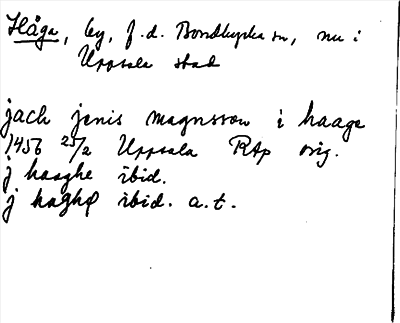 Håga, by, f.d. Bondkyrka sn, nu i
Uppsala stad
jach jenis magnsson i haage
1456 25/2 Uppsala RAp orig.
j haaghe ibid.
j haghe ibid. a.t.